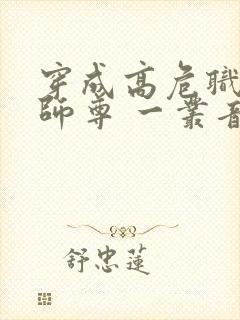 穿成高危職
師尊 一叢音
舒忠蓮